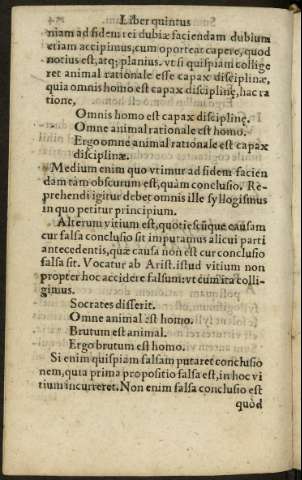 Liber quintus
niam ad fidem rei dubiæ faciendam dubium
etiam accipimus, cum oporteat capere, quod
notius est, atq; planius. vt si quispiam collige
ret animal rationale esse capax disciplinæ,
quia omnis homo est capax disciplinę, hac ra
tione,
Omnis homo est capax disciplinę.
Omne animal rationale est homo.
Ergo omne animal rationale est capax
disciplinæ.
Medium enim quo vtimur ad fidem facien
dam tàm obscurum est, quàm conclusio. Re-
prehendi igitur debet omnis ille syllogismus
in quo petitur principium.
Alterum vitium est, quotiescũque causam
cur falsa conclusio sit imputamus alicui parti
antecedentis, quæ causa non est cur conclusio
falsa sit. Vocatur ab Arist. istud vitium non
propter hoc accidere falsum: vt cùm ita colli-
gimus.
Socrates disserit.
Omne animal est homo.
Brutum est animal.
Ergo brutum est homo.
Si enim quispiam falsam putaret conclusio
nem, quia prima propositio falsa est, in hoc vi
tium incurreret. Non enim falsa conclusio est
quòd